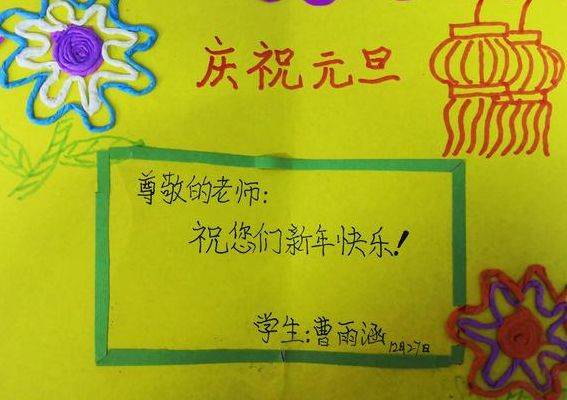 庆祝元旦
尊敬的老师：
祝您们新年快乐！
学生：曹雨涵
12月27日